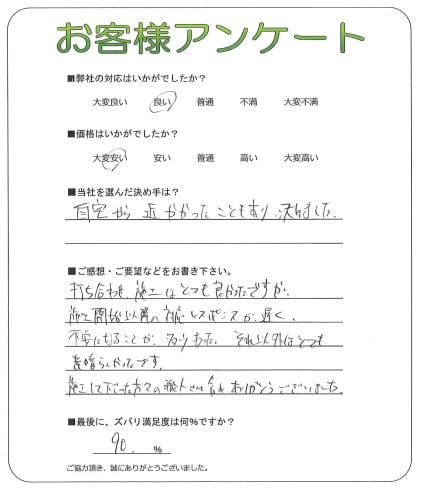 お客様アンケート
■弊社の対応はいかがでしたか？
大変良い 良い 普通 不満 大変不満
■価格はいかがでしたか？
大変安い 安い 普通 高い 大変高い
■当社を選んだ決め手は？
自宅から近かったこともあり、決めました。
■ご感想・ご要望などをお書き下さい。
打ち合わせ、施工はとても良かったですが、
施工開始以降の対応レスポンスが遅く、
不安になることが、多々あった。それ以外はとても
素晴らしかったです。
施工して下さった方々の職人さん含めありがとうございました。
■最後に、ズバリ満足度は何%ですか？
90. %
ご協力頂き、誠にありがとうございました。